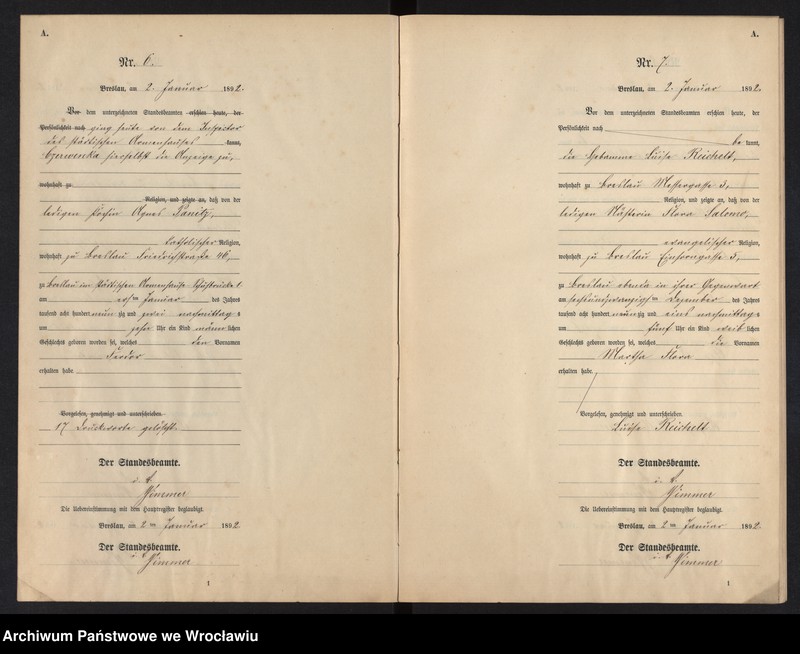 A.
Nr. 6.
Breslau, am 2. Januar 1892.
Vor dem unterzeichneten Standesbeamten erschien heute, der
Persönlichkeit nach ging heute von dem Inspector
des städtischen Armenhauses kannt,
Czerwenka hierselbst die Anzeige zu,
wohnhaft zu
Religion, und zeigte an, daß von der
ledigen Köchin Agnes Panitz,
katholischer Religion,
wohnhaft zu Breslau Friedrichstraße 46,
zu Breslau im städtischen Armenhause
am ersten Januar des Jahres
tausend acht hundert neun zig und zwei nachmittag s
um zehn Uhr ein Kind männ lichen
Geschlechts geboren worden sei, welches den Vornamen
Fedor
erhalten habe
Vorgelesen, genehmigt und unterschrieben
17 Druckworte gelöscht.
Der Standesbeamte.
Zimmer
Die Uebereinstimmung mit dem Hauptregister beglaubigt.
Breslau, am 2ten Januar 1892.
Der Standesbeamte.
Zimmer
1
A.
Nr. 7.
Breslau, am 2. Januar 1892.
Vor dem unterzeichneten Standesbeamten erschien heute, der
Persönlichkeit nach
be kannt,
die Hebamme Luise Reichelt,
wohnhaft zu Breslau Messergasse 3,
Religion, und zeigte an, daß von der
ledigen Nähterin Flora Salomo,
evangelischer Religion,
wohnhaft zu Breslau Einhorngasse 3,
zu Breslau ebenda in ihrer Gegenwart
am sechsundzwanzigsten Dezember des Jahres
tausend acht hundert neun zig und eins nachmittag s
um fünf Uhr ein Kind weib lichen
Geschlechts geboren worden sei, welches die Vornamen
Martha Flora
erhalten habe.
Vorgelesen, genehmigt und unterschrieben.
Luise Reichelt
Der Standesbeamte.
Zimmer
Die Uebereinstimmung mit dem Hauptregister beglaubigt.
Breslau, am 2ten Januar 1892.
Der Standesbeamte.
Zimmer
1
Archiwum Państwowe we Wrocławiu